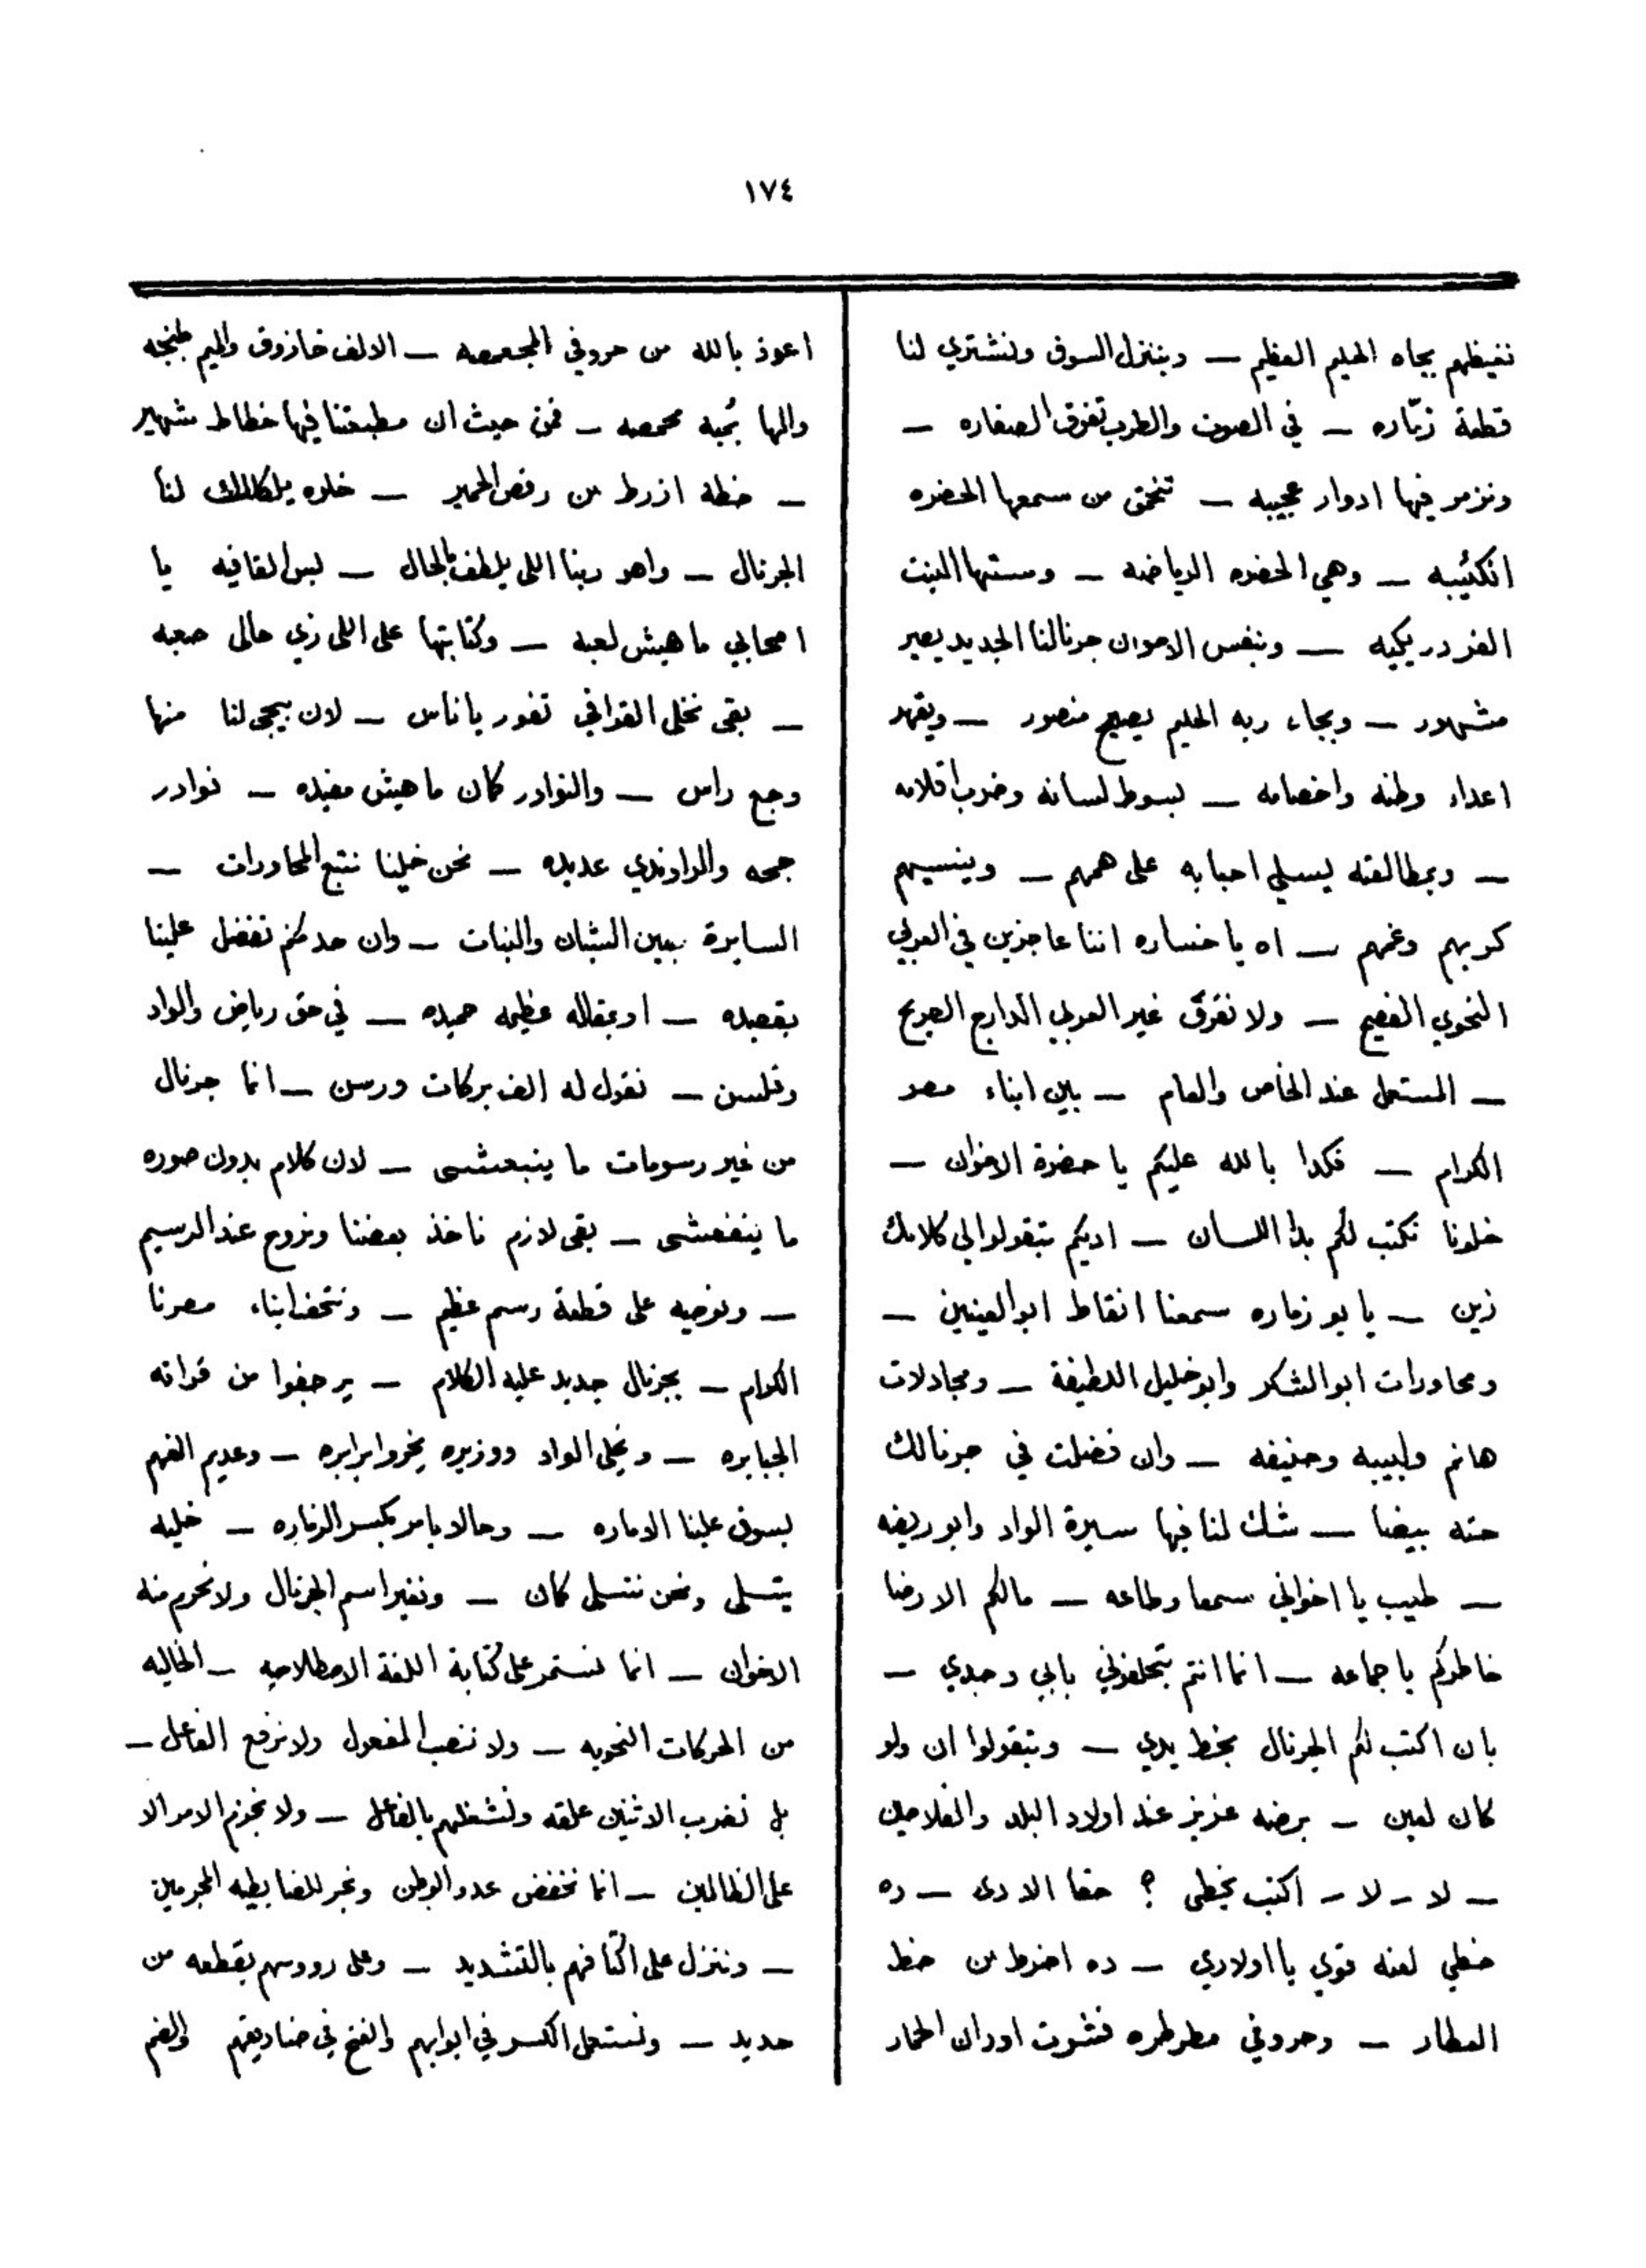 ١٧٤
نغيظهم بجاه الحليم العظيم — وبننزل السوق ونشتري لنا
قطعة زمّاره — في الصوت والطرب تفوق الصفاره —
ونزمر فيها ادوار عجيبه — تنخمق من سمعها الحضره
الكئيبه — وهي الحضره الرياضه — وستها البنت
الفردريكيه — وبنفس الاخوان جرنالنا الجديد يصير
مشهور — وبجاه ربه الحليم يصبح منصور — ويقهر
اعداء وطنه واخصامه — بسوط لسانه وضرب اقلامه
— وبمطالعته يسلي احبابه على همهم — وينسيهم
كربهم وغمهم — اه يا خساره اننا عاجزين في العربي
النحوي الفصيح — ولا نعرف غير العربي الدارج الصريح
— المستعمل عند الخاص والعام — بين ابناء مصر
الكرام — فكدا بالله عليكم يا حضرة الاخوان —
خلونا نكتب لكم بدا اللسان — اديكم بتقولوا لي كلامك
زين — يا بو زماره سمعنا انقاط ابو العينين —
ومحاورات ابو الشكر وابو خليل اللطيفة — ومجادلات
هانم ولبيبه وحنيفه — وان فضلت في جرنالك
حته بيضا — شك لنا فيها سيرة الواد وابو ريضه
— طيب يا اخواني سمعا وطاعه — مالكم الا رضا
خاطركم يا جماعه — انما انتم بتحلفوني بابي وجدي —
بان اكتب لكم الجرنال بخط يدي — وبتقولوا ان ولو
كان لعين — برضه عزيز عند اولاد البلد والفلاحين
— لا — لا — اكتب بخطي ؟ حقا الا دى — ده
خطي لعنه قوي يا اولادي — ده اضرط من خط
العطار — وحروفي مطرطره فشوت اوران الحمار
اعوذ بالله من حروفي المجعمصه — الالف خازوق والميم طبنجه
والها بُمبه محمصه — فمن حيث ان مطبعتنا فيها خطاط شهير
— خطه ازرط من رفص الحمير — خلوه يلكلك لنا
الجرنال — واهو ربنا اللي يلطف بالحال — لبس القافيه يا
اصحابي ماهيش لعبه — وكتابتها على اللي زي حالى صعبه
— بقى نخلى القوافي تغور يا ناس — لان بيجى لنا منها
وجع راس — والنوادر كمان ماهيش مفيده — نوادر
جحه والراوندي عديده — نحن خلينا نتبع المحاورات —
السايرة بين الشبان والبنات — وان حد منكم تفضل علينا
بقصيده — او بمقاله عظيمه حميده — في حق رياض والواد
وقلسن — نقول له الف بركات ورسن — انما جرنال
من غير رسومات ما ينبعشى — لان كلام بدون صوره
ما ينفعشى — بقى لازم ناخذ بعضنا ونروح عند الرسيم
— ونوصيه على قطعة رسم عظيم — ونتحف ابناء مصرنا
الكرام — بجرنال جديد عليه الكلام — يرجفوا من قراته
الجبابره — ونخلى الواد ووزيره يخروا برابره — وعديم الفهم
يسوق علينا الاماره — وحالا يامر بكسر الزماره — خليه
يتسلى ونحن نتسلى كمان — ونغير اسم الجرنال ولا نحرم منه
الاخوان — انما نستمر على كتابة اللغة الاصطلاحيه — الخاليه
من الحركات النحويه — ولا ننصب المفعول ولا نرفع الفاعل —
بل نضرب الاثنين علقه ونشغلهم بالفاعل — ولا نجزم الامر الا
على الظالمين — انما نخفض عدو الوطن ونجر للضابطيه المجرمين
— وننزل على اكتافهم بالتشديد — وعلى رووسهم بقطعه من
حديد — ونستعمل الكسر في ابوابهم والفتح في صناديقهم والضم